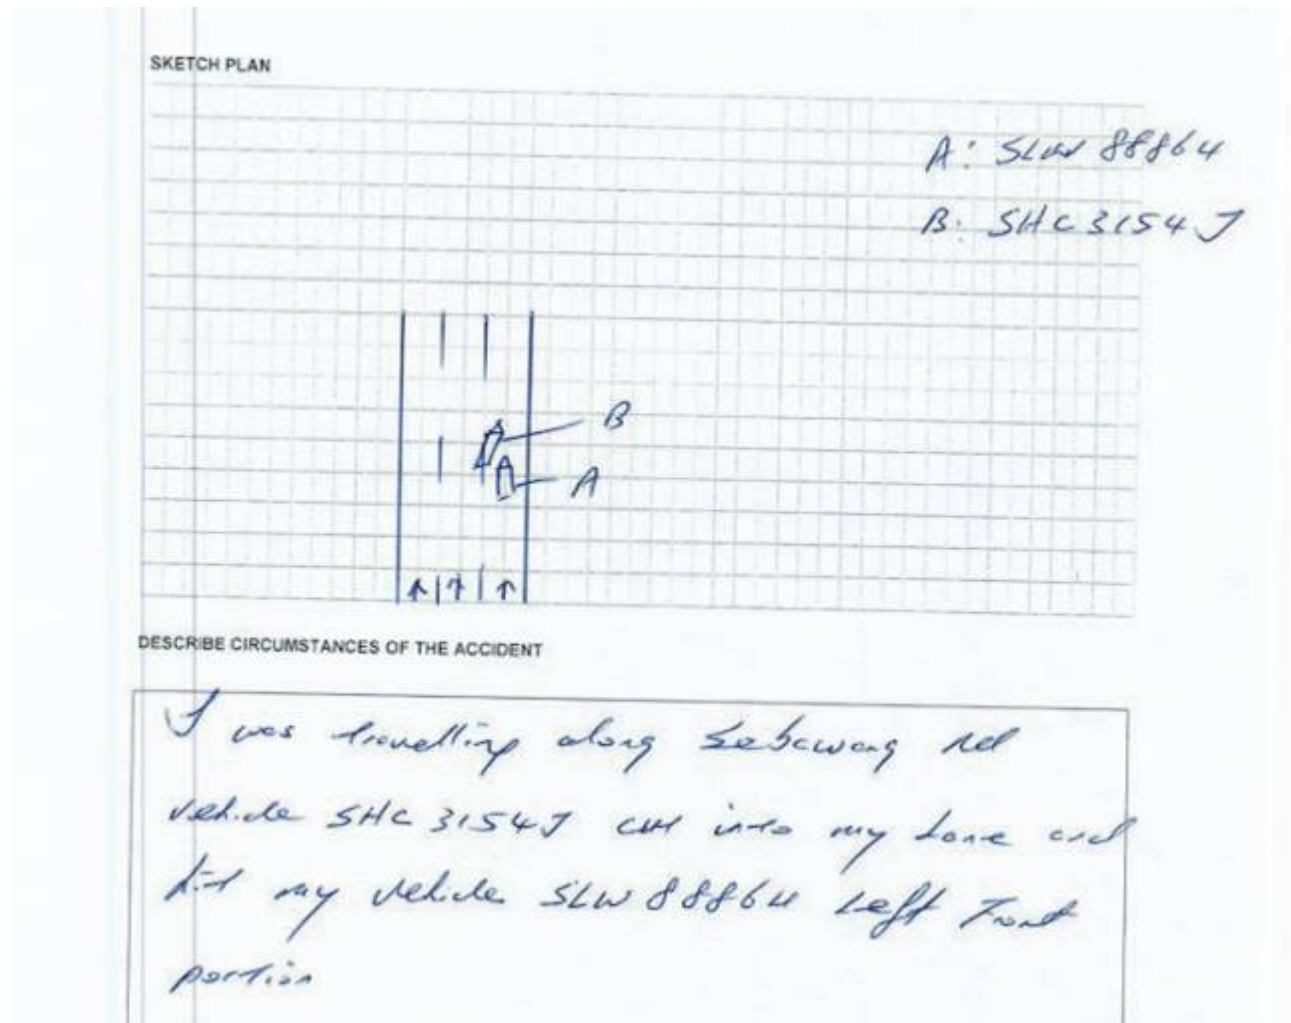 SKETCH PLAN
A: SLW 8886U
B: SHC 3154J
B
A
DESCRIBE CIRCUMSTANCES OF THE ACCIDENT
I was travelling along Sebawang Rd
vehicle SHC 3154J cut into my lane and
hit my vehicle SLW 8886U Left Front
portion